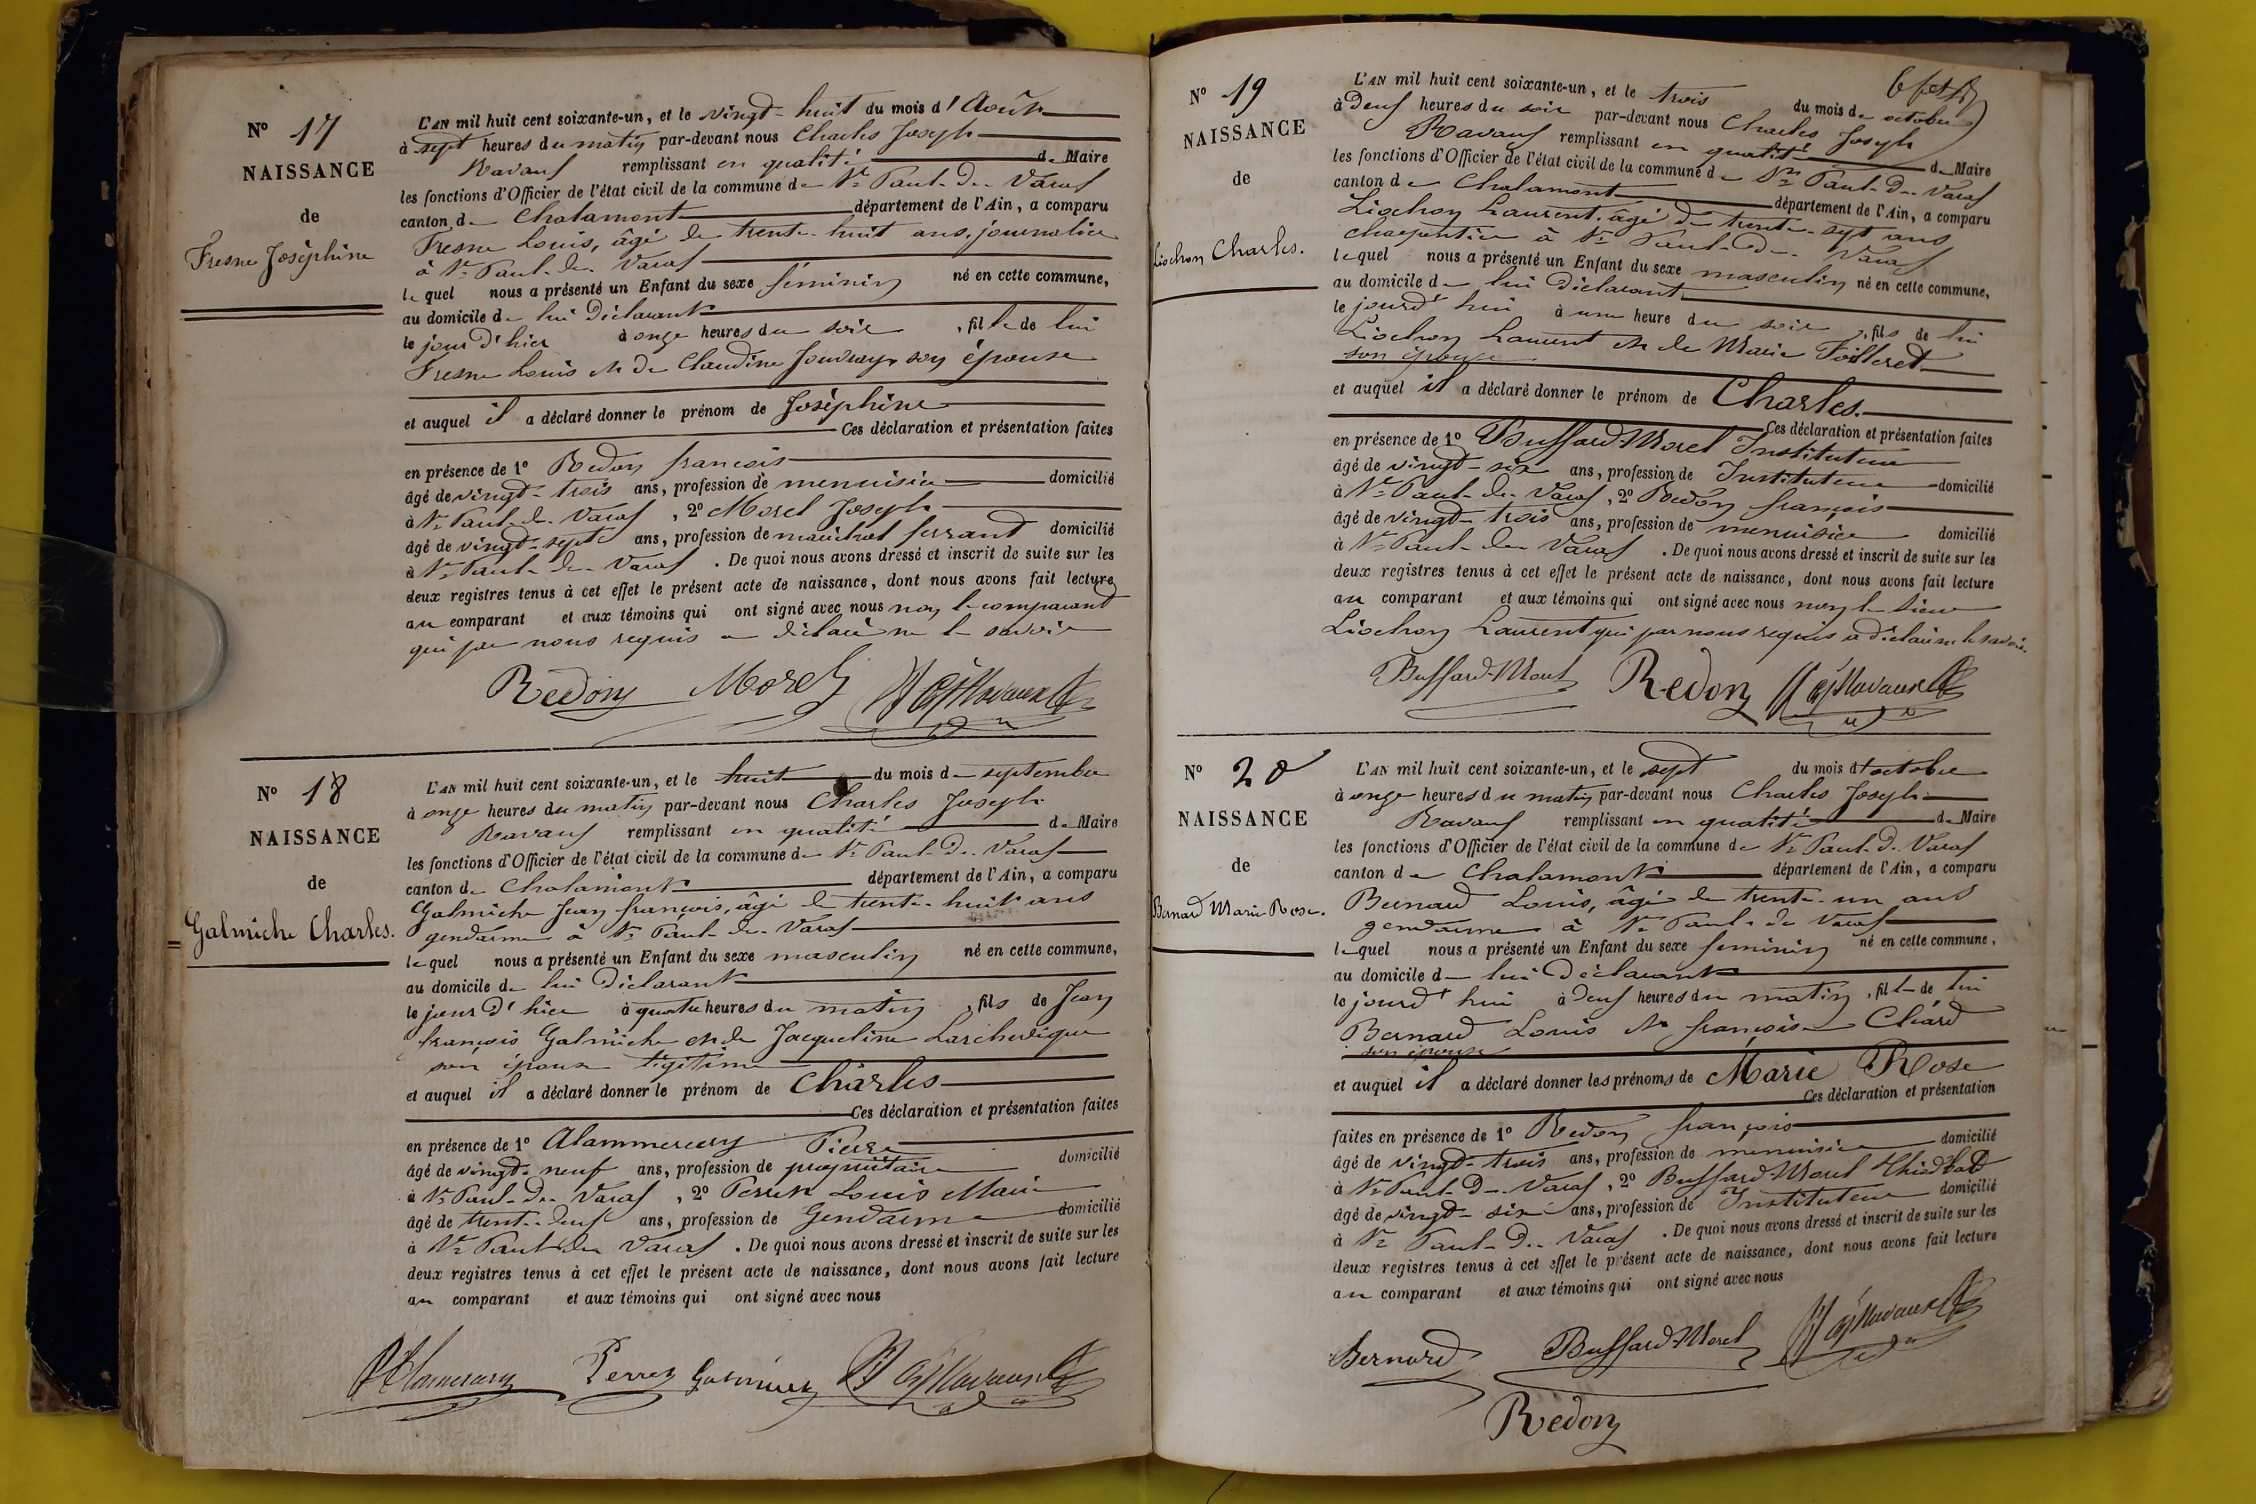 N° 17
NAISSANCE
de
Fresne Joséphine
L'AN mil huit cent soixante-un, et le vingt-huit du mois d'Août
à sept heures du matin par-devant nous Charles Joseph
Ravaux remplissant en qualité de Maire
les fonctions d'Officier de l'état civil de la commune de St Paul-de-Varax
canton de Chalamont département de l'Ain, a comparu
Fresne Louis, âgé de trente-huit ans, journalier
à St Paul-de-Varax
lequel nous a présenté un Enfant du sexe féminin né en cette commune,
au domicile de lui Déclarant
le jour d'hier à onze heures du soir, fille de lui
Fresne Louis et de Claudine son épouse
et auquel il a déclaré donner le prénom de Joséphine
Ces déclaration et présentation faites
en présence de 1° Redon françois
âgé de vingt-trois ans, profession de menuisier domicilié
à St Paul-de-Varax, 2° Morel Joseph
âgé de vingt-sept ans, profession de maréchal ferrant domicilié
à St Paul-de-Varax. De quoi nous avons dressé et inscrit de suite sur les
deux registres tenus à cet effet le présent acte de naissance, dont nous avons fait lecture
au comparant et aux témoins qui ont signé avec nous non le comparant
qui par nous requis a déclaré ne le savoir
Redon Morel Ravaux
N° 18
NAISSANCE
de
Galmiche Charles.
L'AN mil huit cent soixante-un, et le huit du mois de septembre
à onze heures du matin par-devant nous Charles Joseph
Ravaux remplissant en qualité de Maire
les fonctions d'Officier de l'état civil de la commune de St Paul-de-Varax
canton de Chalamont département de l'Ain, a comparu
Galmiche Jean françois, âgé de trente-huit ans
gendarme à St Paul-de-Varax
lequel nous a présenté un Enfant du sexe masculin né en cette commune,
au domicile de lui Déclarant
le jour d'hier à quatre heures du matin, fils de Jean
françois Galmiche et de Jacqueline Larchevêque
son épouse légitime
et auquel il a déclaré donner le prénom de Charles
Ces déclaration et présentation faites
en présence de 1° Alammercery Pierre
âgé de vingt-neuf ans, profession de propriétaire domicilié
à St Paul-de-Varax, 2° Perret Louis Marie
âgé de trente-deux ans, profession de Gendarme domicilié
à St Paul-de-Varax. De quoi nous avons dressé et inscrit de suite sur les
deux registres tenus à cet effet le présent acte de naissance, dont nous avons fait lecture
au comparant et aux témoins qui ont signé avec nous
Perret Galmiche Ravaux
N° 19
NAISSANCE
de
Liochon Charles.
L'AN mil huit cent soixante-un, et le trois du mois de octobre
à deux heures du soir par-devant nous Charles Joseph
Ravaux remplissant en qualité de Maire
les fonctions d'Officier de l'état civil de la commune de St Paul-de-Varax
canton de Chalamont département de l'Ain, a comparu
Liochon Laurent, âgé de trente-sept ans
charpentier à St Paul-de-Varax
lequel nous a présenté un Enfant du sexe masculin né en cette commune,
au domicile de lui Déclarant
le jourd'hui à une heure du soir, fils de lui
Liochon Laurent et de Marie
son épouse
et auquel il a déclaré donner le prénom de Charles.
Ces déclaration et présentation faites
en présence de 1° Buffard-Morel Instituteur
âgé de vingt-six ans, profession de Instituteur domicilié
à St Paul-de-Varax, 2° Redon françois
âgé de vingt-trois ans, profession de menuisier domicilié
à St Paul-de-Varax. De quoi nous avons dressé et inscrit de suite sur les
deux registres tenus à cet effet le présent acte de naissance, dont nous avons fait lecture
au comparant et aux témoins qui ont signé avec nous non le sieur
Liochon Laurent qui par nous requis a déclaré ne le savoir.
Buffard-Morel Redon Ravaux
N° 20
NAISSANCE
de
Bernard Marie Rose.
L'AN mil huit cent soixante-un, et le sept du mois d'octobre
à onze heures du matin par-devant nous Charles Joseph
Ravaux remplissant en qualité de Maire
les fonctions d'Officier de l'état civil de la commune de St Paul-de-Varax
canton de Chalamont département de l'Ain, a comparu
Bernard Louis, âgé de trente-un ans
gendarme à St Paul-de-Varax
lequel nous a présenté un Enfant du sexe féminin né en cette commune,
au domicile de lui Déclarant
le jourd'hui à deux heures du matin, fille de lui
Bernard Louis et françoise Chard
son épouse
et auquel il a déclaré donner les prénoms de Marie Rose
Ces déclaration et présentation
faites en présence de 1° Redon françois
âgé de vingt-trois ans, profession de menuisier domicilié
à St Paul-de-Varax, 2° Buffard-Morel
âgé de vingt-six ans, profession de Instituteur domicilié
à St Paul-de-Varax. De quoi nous avons dressé et inscrit de suite sur les
deux registres tenus à cet effet le présent acte de naissance, dont nous avons fait lecture
au comparant et aux témoins qui ont signé avec nous
Bernard Buffard-Morel Ravaux
Redon